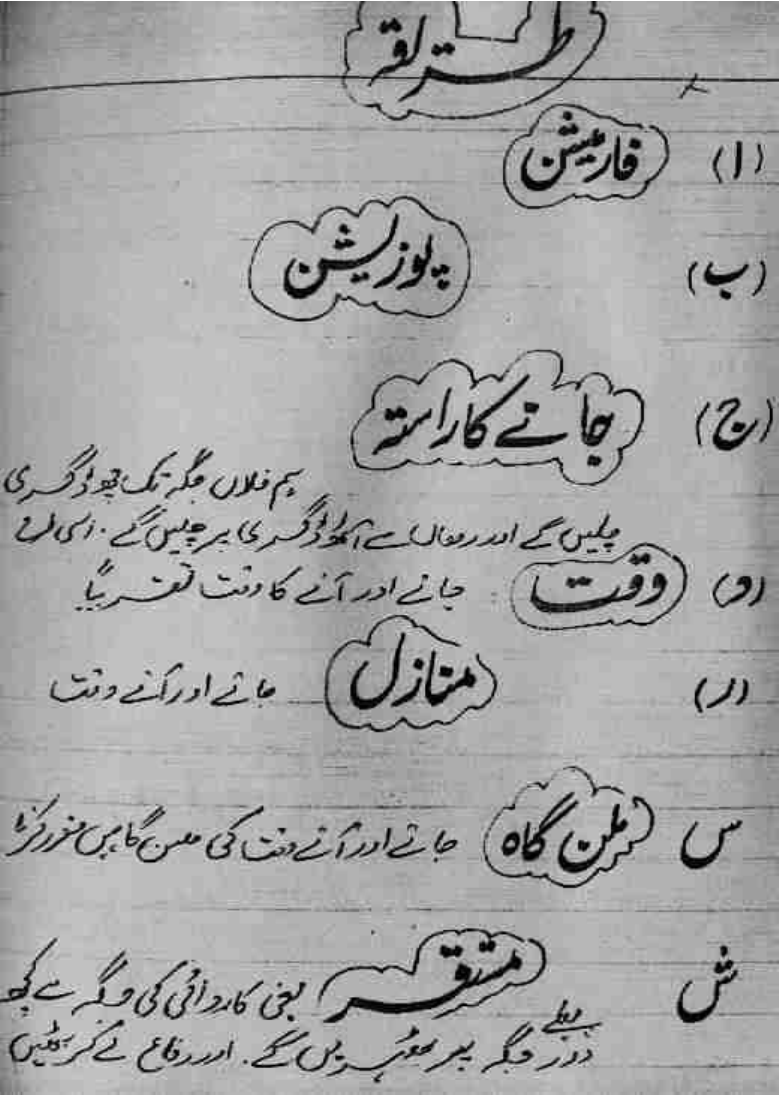 طریقہ
(ا) فارمیشن
(ب) پوزیشن
(ج) جانے کا راستہ
ہم فلاں جگہ تک چھ ڈگری
چلیں گے اور وہاں سے آٹھ ڈگری پر چلیں گے۔ اسی طرح
(د) وقت : جانے اور آنے کا وقت تقریباً
(ر) منازل جاتے اور آتے وقت
س ملن گاہ جاتے اور آتے وقت کی ملن گاہیں مقرر کرنا
ش مستقر یعنی کاروائی کی جگہ سے کچھ
پہلے
دور جگہ پر ٹھہریں گے۔ اور دفاع لے کر بیٹھیں